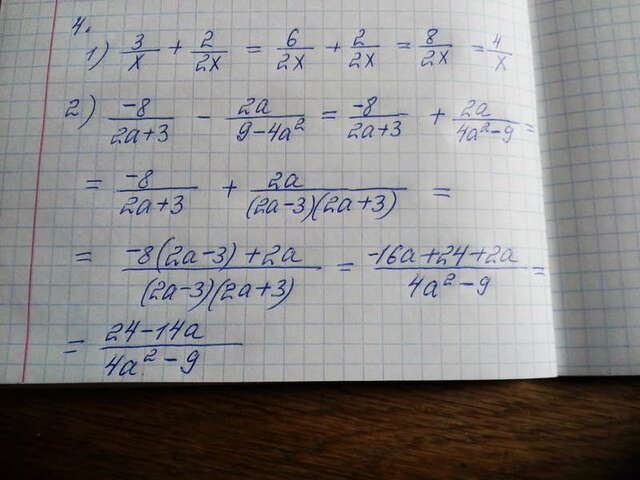 4.
1) 3/x + 2/2x = 6/2x + 2/2x = 8/2x = 4/x
2) -8/(2a+3) - 2a/(9-4a²) = -8/(2a+3) + 2a/(4a²-9) =
= -8/(2a+3) + 2a/((2a-3)(2a+3)) =
= (-8(2a-3)+2a)/((2a-3)(2a+3)) = (-16a+24+2a)/(4a²-9) =
= (24-14a)/(4a²-9)